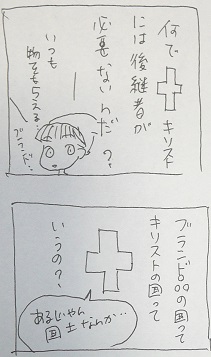 何で
キリスト
には後継者が
必要ないんだ?
いつも
物でもらえる。
ブランド…
ブランド品の国って
キリストの国って
いうの?、
あるじゃん
国土なんか…